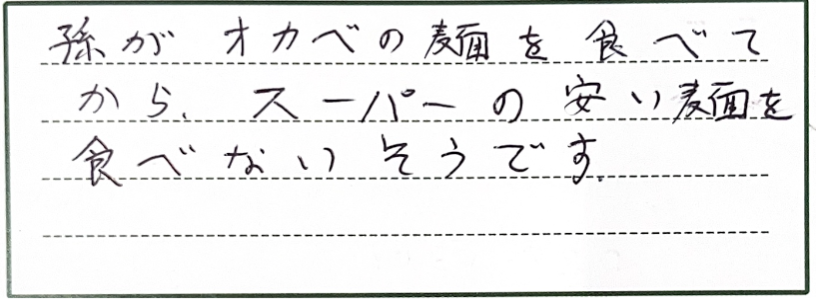 孫が オカベの麺を 食べて
から、スーパーの 安い麺を
食べないそうです。